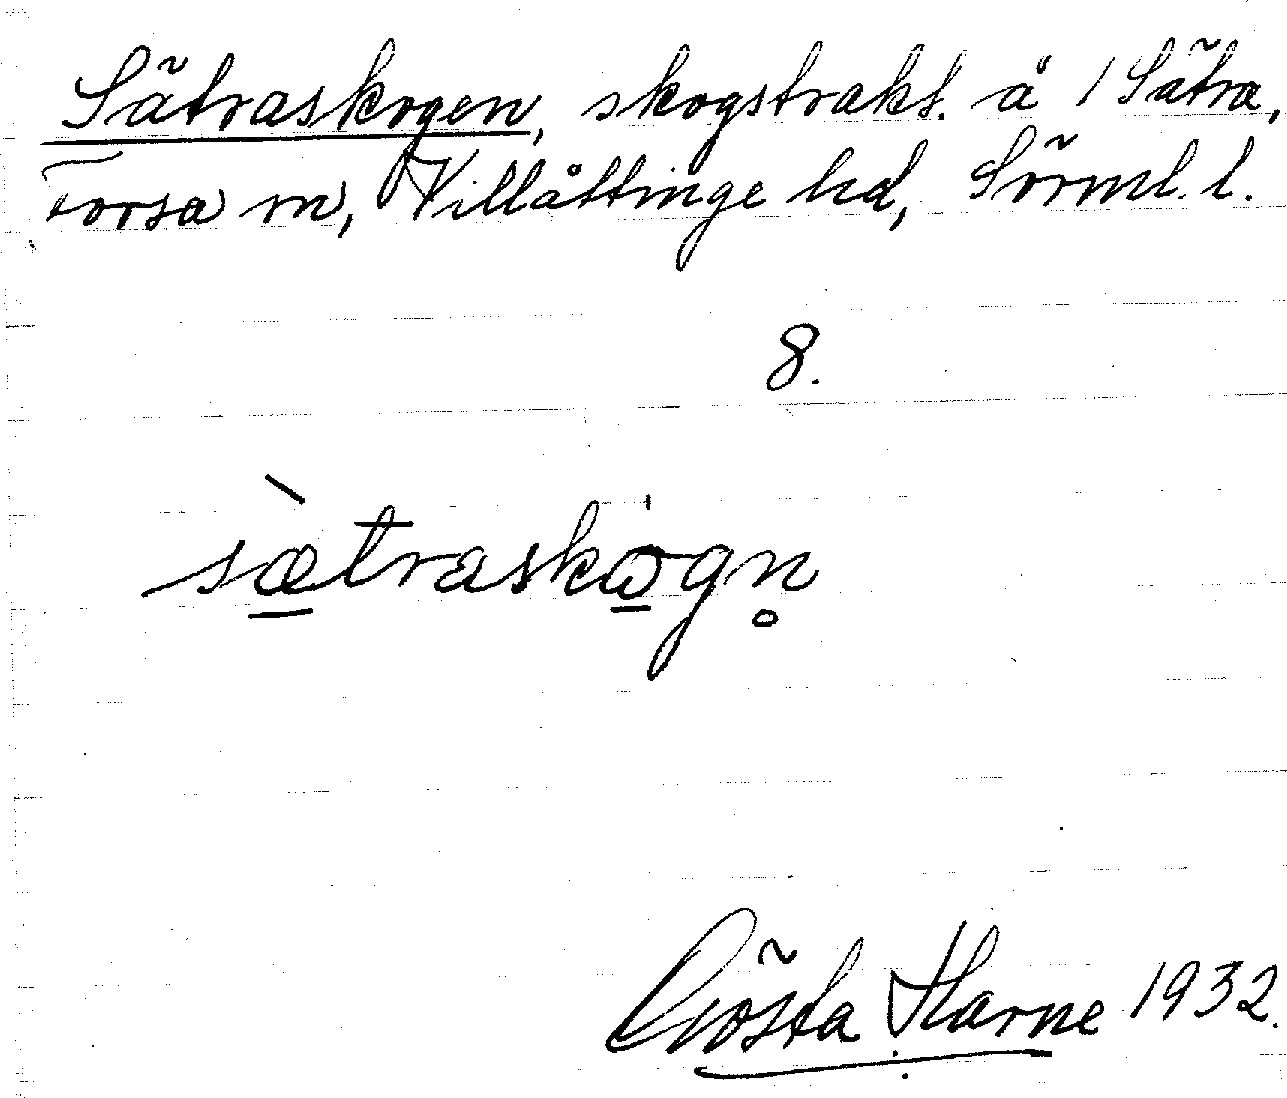 Sätraskogen, skogstrakt. å 1 Sätra,
Forsa sn, Villåttinge hd, Sörml. l.
8.
sætraskogn̥
Gösta Harne 1932.